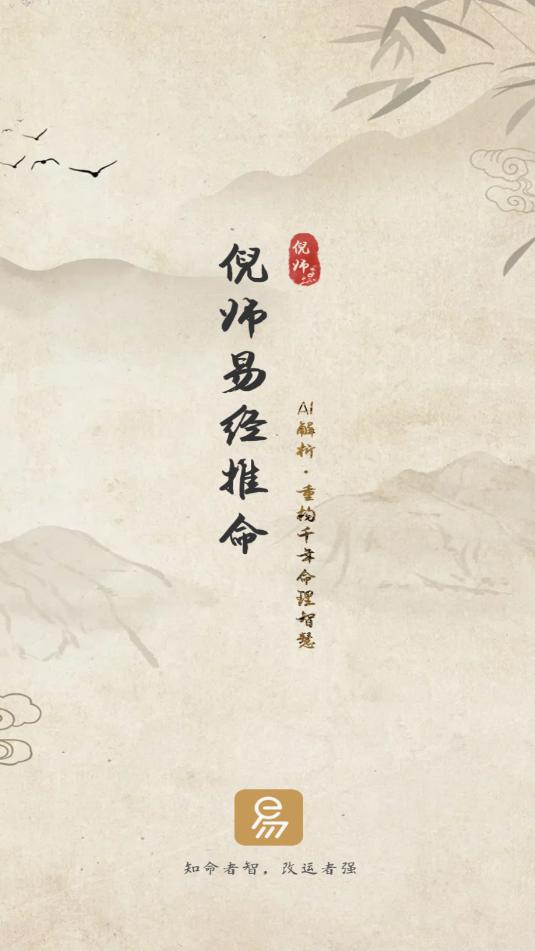 倪师
倪师易经推命
AI解析·重构千年命理智慧
易
知命者智，改运者强